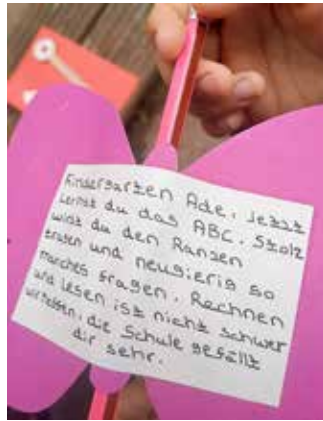 Kindergarten Ade. Jetzt
Lernst du das ABC. Stolz
wirst du den Ranzen
tragen und neugierig so
manches fragen. Rechnen
und lesen ist nicht schwer
wir hoffen, die Schule gefällt
dir sehr.